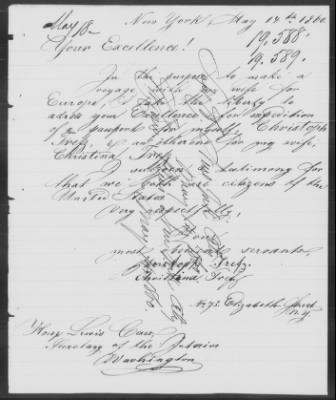 New York May 14th 1860
May 18
19,588
Your Excellence! 19,589
In the purpose to make a
voyage with my wife for
Europe, I take the liberty to
address your Excellence for expedition
of a passport for myself, Christoph
& an otherone for my wife,
Christina
I subjoin testimony for
that we both are citizens of the
United States
Very respectfully,
Your
most obedient servants,
Christoph
Christina
No 75. Elizabeth Street
N.Y.
Lewis Cass
Secretary of the Interior
Washington